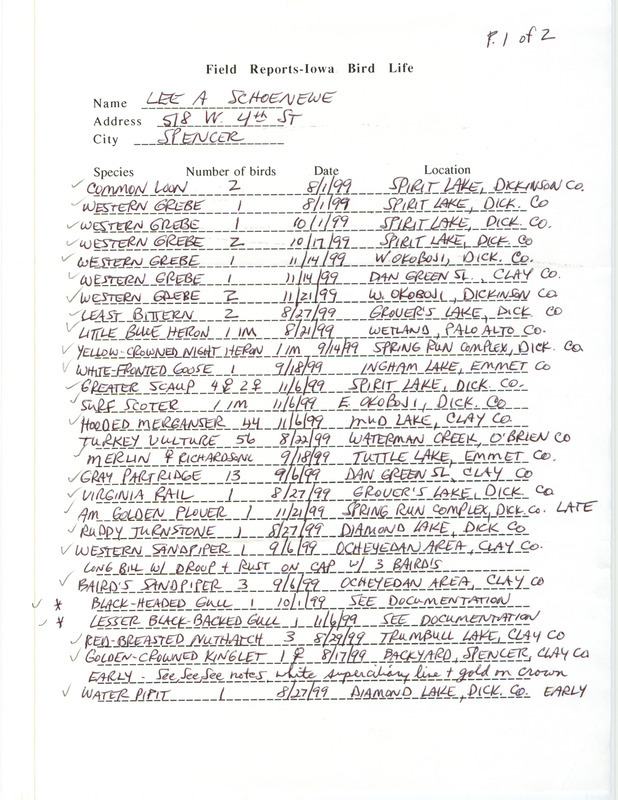 P. 1 of 2
Field Reports-Iowa Bird Life
Name LEE A SCHOENEWE
Address 518 W. 4th ST
City SPENCER
Species Number of birds Date Location
✓ COMMON LOON 2 8/1/99 SPIRIT LAKE, DICKINSON CO.
✓ WESTERN GREBE 1 8/1/99 SPIRIT LAKE, DICK. CO
✓ WESTERN GREBE 1 10/1/99 SPIRIT LAKE, DICK. CO.
✓ WESTERN GREBE 2 10/17/99 SPIRIT LAKE, DICK. CO
✓ WESTERN GREBE 1 11/14/99 W. OKOBOJI, DICK. CO.
✓ WESTERN GREBE 1 11/14/99 DAN GREEN SL., CLAY CO.
✓ WESTERN GREBE 2 11/21/99 W. OKOBOJI, DICKINSON CO
✓ LEAST BITTERN 2 8/27/99 GROVER'S LAKE, DICK CO
✓ LITTLE BLUE HERON 1 IM 8/21/99 WETLAND, PALO ALTO CO.
✓ YELLOW-CROWNED NIGHT HERON 1 IM 9/14/99 SPRING RUN COMPLEX, DICK. CO.
✓ WHITE-FRONTED GOOSE 1 9/18/99 INGHAM LAKE, EMMET CO
✓ GREATER SCAUP 4♀ 2♀ 11/6/99 SPIRIT LAKE, DICK. CO.
✓ SURF SCOTER 1 IM 11/6/99 E. OKOBOJI, DICK. CO
✓ HOODED MERGANSER 44 11/6/99 MUD LAKE, CLAY CO.
✓ TURKEY VULTURE 56 8/22/99 WATERMAN CREEK, O'BRIEN CO
✓ MERLIN ♀ RICHARDSONI 9/18/99 TUTTLE LAKE, EMMET CO.
✓ GRAY PARTRIDGE 13 9/6/99 DAN GREEN SL, CLAY CO
✓ VIRGINIA RAIL 1 8/27/99 GROVER'S LAKE, DICK. CO
✓ AM GOLDEN PLOVER 1 11/21/99 SPRING RUN COMPLEX, DICK.CO. LATE
✓ RUDDY TURNSTONE 1 8/27/99 DIAMOND LAKE, DICK CO
✓ WESTERN SANDPIPER 1 9/6/99 OCHEYEDAN AREA, CLAY CO.
LONG BILL W/ DROUP + RUST ON CAP W/ 3 BAIRD'S
✓ BAIRD'S SANDPIPER 3 9/6/99 OCHEYEDAN AREA, CLAY CO
✓ * BLACK-HEADED GULL 1 10/1/99 SEE DOCUMENTATION
✓ * LESSER BLACK-BACKED GULL 1 11/6/99 SEE DOCUMENTATION
✓ RED-BREASTED NUTHATCH 3 8/29/99 TRUMBULL LAKE, CLAY CO
✓ GOLDEN-CROWNED KINGLET 1♀ 8/17/99 BACKYARD, SPENCER, CLAY CO
EARLY - See, See, See notes, white superciliary line + gold on crown
✓ WATER PIPIT 1 8/27/99 DIAMOND LAKE, DICK. CO. EARLY